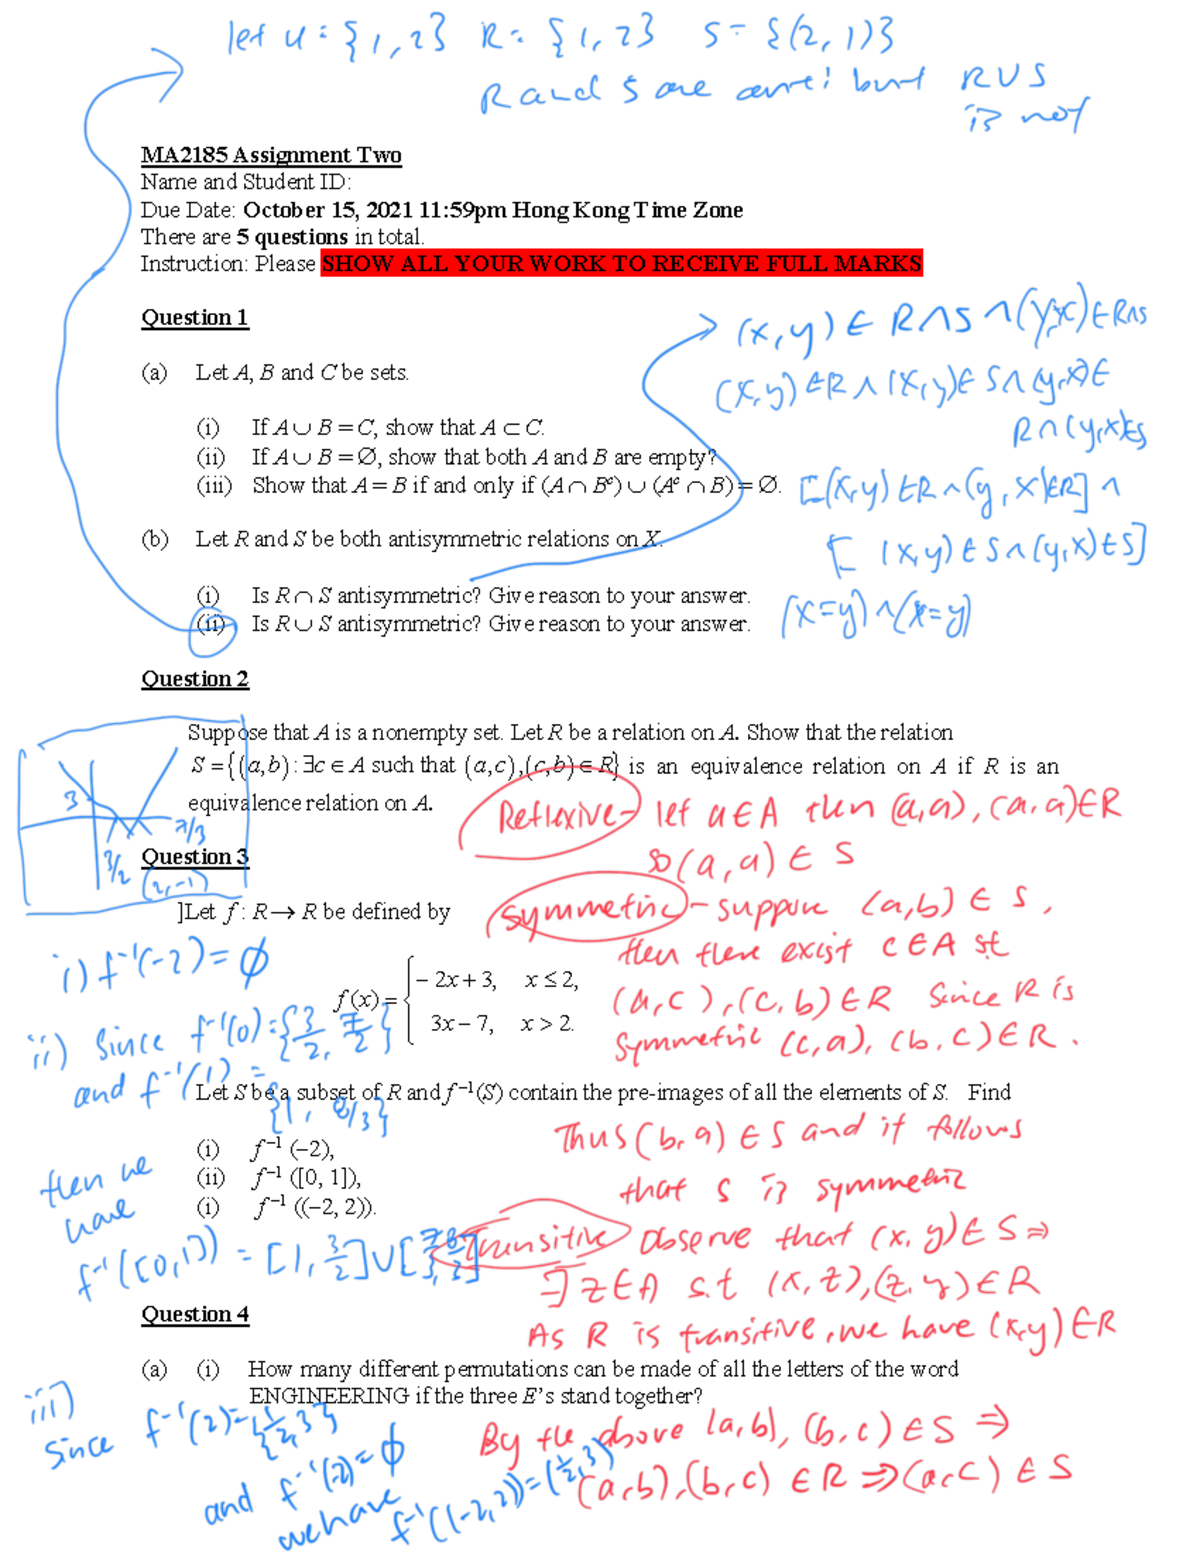 let u = {1, 2} R = {1, 2} S = {(2, 1)}
R and S are anti but R∪S
is not
MA2185 Assignment Two
Name and Student ID:
Due Date: October 15, 2021 11:59pm Hong Kong Time Zone
There are 5 questions in total.
Instruction: Please SHOW ALL YOUR WORK TO RECEIVE FULL MARKS
Question 1
(a) Let A, B and C be sets.
(i) If A ∪ B = C, show that A ⊂ C.
(ii) If A ∪ B = ∅, show that both A and B are empty?
(iii) Show that A = B if and only if (A ∩ Bᶜ) ∪ (Aᶜ ∩ B) = ∅.
(b) Let R and S be both antisymmetric relations on X.
(i) Is R ∩ S antisymmetric? Give reason to your answer.
(ii) Is R ∪ S antisymmetric? Give reason to your answer.
(x, y) ∈ R∩S ∧ (y, x) ∈ R∩S
(x, y) ∈ R ∧ (x, y) ∈ S ∧ (y, x) ∈
R ∧ (y, x) ∈ S
[(x, y) ∈ R ∧ (y, x) ∈ R] ∧
[(x, y) ∈ S ∧ (y, x) ∈ S]
(x = y) ∧ (x = y)
Question 2
Suppose that A is a nonempty set. Let R be a relation on A. Show that the relation
S = {(a, b) : ∃c ∈ A such that (a, c), (c, b) ∈ R} is an equivalence relation on A if R is an
equivalence relation on A.
Reflexive - let a ∈ A then (a, a), (a, a) ∈ R
so (a, a) ∈ S
Symmetric - suppose (a, b) ∈ S,
then there exist c ∈ A st
(a, c), (c, b) ∈ R Since R is
symmetric (c, a), (b, c) ∈ R.
Thus (b, a) ∈ S and it follows
that S is symmetric
Transitive observe that (x, y) ∈ S ⇒
∃ z ∈ A s.t (x, z), (z, y) ∈ R
As R is transitive, we have (x, y) ∈ R
By the above (a, b), (b, c) ∈ S ⇒
(a, b), (b, c) ∈ R ⇒ (a, c) ∈ S
3
7/3
3/2
(2, -1)
Question 3
]Let f : R → R be defined by
f(x) = { − 2x + 3, x ≤ 2,
3x − 7, x > 2.
Let S be a subset of R and f⁻¹(S) contain the pre-images of all the elements of S. Find
(i) f⁻¹ (−2),
(ii) f⁻¹ ([0, 1]),
(i) f⁻¹ ((−2, 2)).
i) f⁻¹(-2) = ∅
ii) Since f⁻¹(0) = {3/2, 7/2}
and f⁻¹(1) =
{1, 8/3}
then we
have
f⁻¹([0, 1]) = [1, 3/2] ∪ [7/3, 8/3]
Question 4
(a) (i) How many different permutations can be made of all the letters of the word
ENGINEERING if the three E's stand together?
iii)
Since f⁻¹(2) = {1/2, 3}
and f⁻¹(-2) = ∅
we have
f⁻¹((-2, 2)) = (1/2, 3)